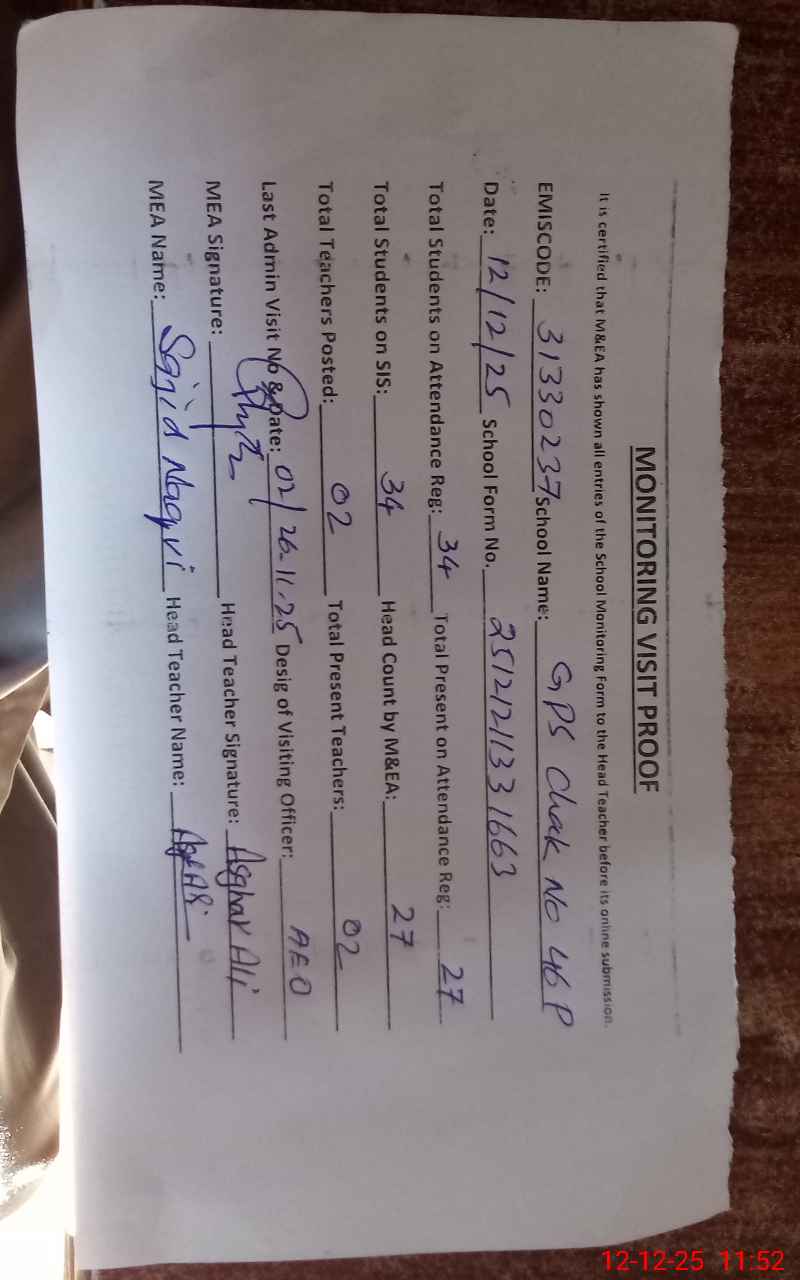 MONITORING VISIT PROOF
It is certified that M&EA has shown all entries of the School Monitoring Form to the Head Teacher before its online submission.
EMISCODE: 31330237 School Name: GPS Chak No 46 P
Date: 12/12/25 School Form No. 2512121331663
Total Students on Attendance Reg: 34 Total Present on Attendance Reg: 27
Total Students on SIS: 34 Head Count by M&EA: 27
Total Teachers Posted: 02 Total Present Teachers: 02
Last Admin Visit No & Date: 02/26-11-25 Desig of Visiting Officer: AEO
MEA Signature: Head Teacher Signature: Asghar Ali
MEA Name: Sajid Naqvi Head Teacher Name:
12-12-25 11:52